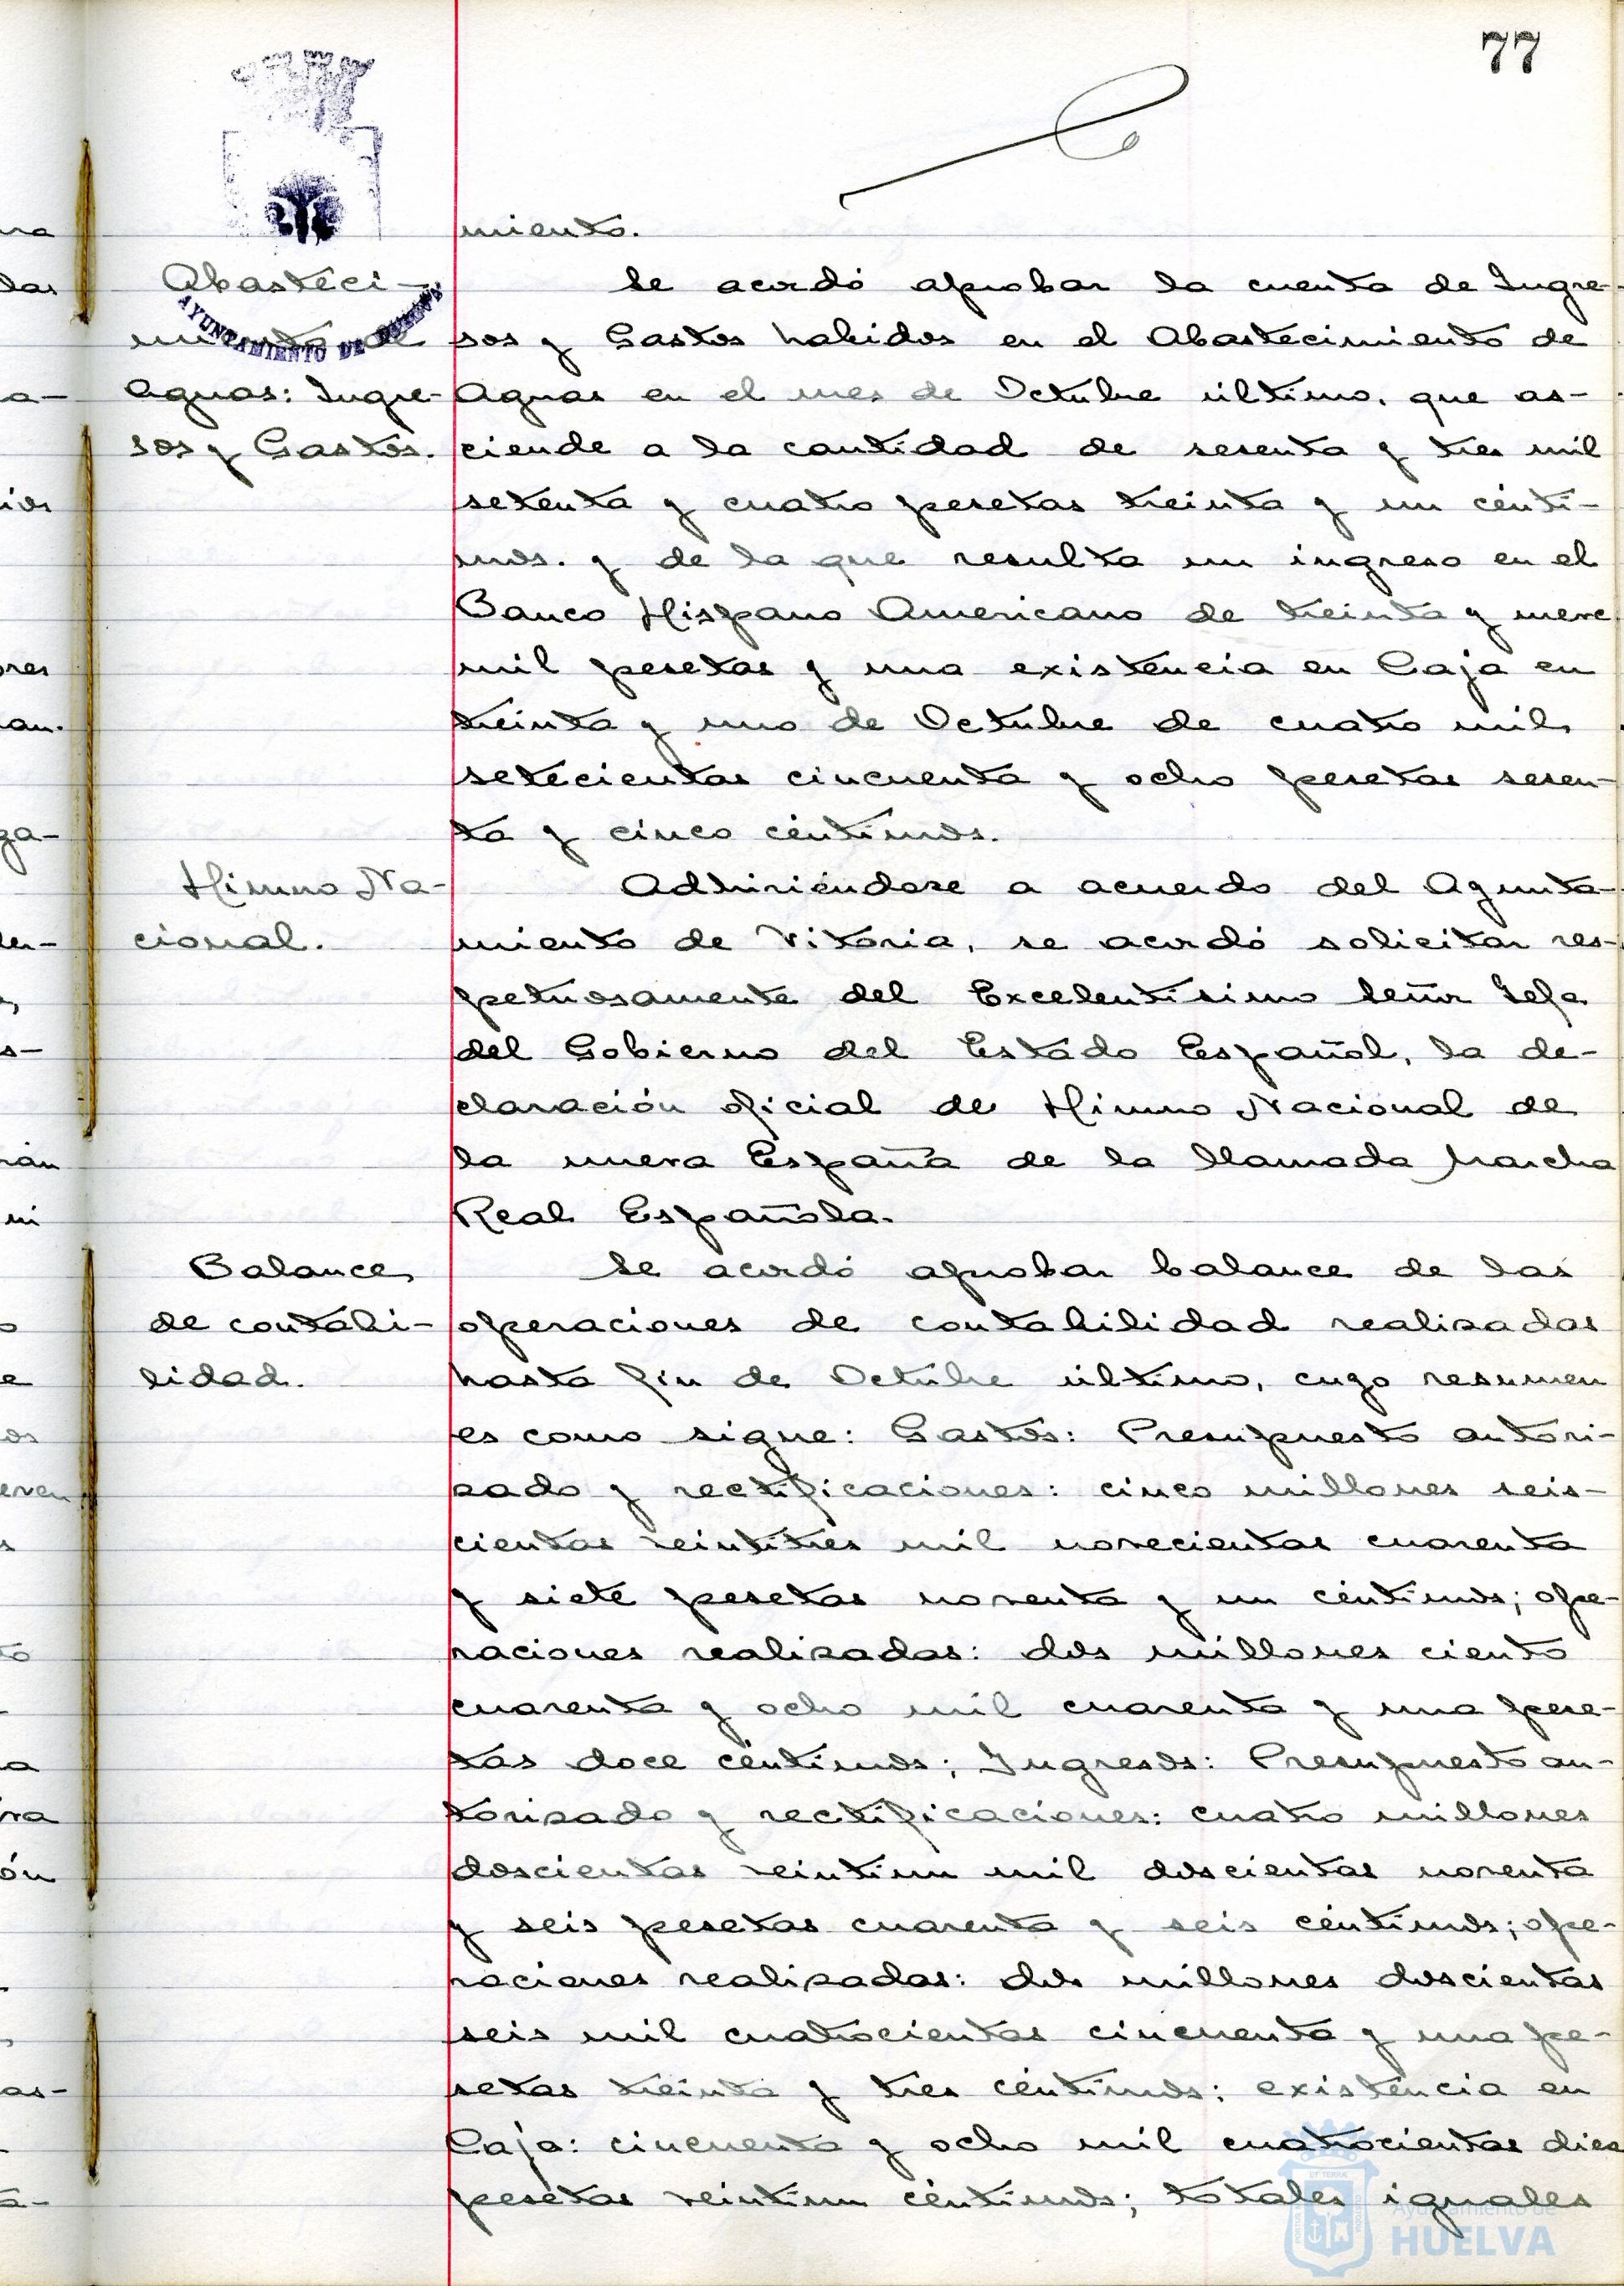 77
miento.
Abasteci-
miento de
Aguas: Ingre-
sos y Gastos.
AYUNTAMIENTO DE HUELVA
Se acordó aprobar la cuenta de Ingre-
sos y Gastos habidos en el Abastecimiento de
Aguas en el mes de Octubre último, que as-
ciende a la cantidad de sesenta y tres mil
setenta y cuatro pesetas treinta y un cénti-
mos. y de la que resulta un ingreso en el
Banco Hispano Americano de treinta y nueve
mil pesetas y una existencia en Caja en
treinta y uno de Octubre de cuatro mil
setecientas cincuenta y ocho pesetas sesen-
ta y cinco céntimos.
Himno Na-
cional.
Adhiriéndose a acuerdo del Ayunta-
miento de Vitoria, se acordó solicitar res-
petuosamente del Excelentísimo Señor Jefe
del Gobierno del Estado Español, la de-
claración oficial de Himno Nacional de
la nueva España de la llamada Marcha
Real Española.
Balance
de contabi-
lidad.
Se acordó aprobar balance de las
operaciones de contabilidad realizadas
hasta fin de Octubre último, cuyo resumen
es como sigue: Gastos: Presupuesto autori-
zado y rectificaciones: cinco millones seis-
cientas veintitres mil novecientas cuarenta
y siete pesetas noventa y un céntimos; ope-
raciones realizadas: dos millones ciento
cuarenta y ocho mil cuarenta y una pese-
tas doce céntimos; Ingresos: Presupuesto au-
torizado y rectificaciones: cuatro millones
doscientas veintiun mil doscientas noventa
y seis pesetas cuarenta y seis céntimos; ope-
raciones realizadas: dos millones doscientas
seis mil cuatrocientas cincuenta y una pe-
setas treinta y tres céntimos; existencia en
Caja: cincuenta y ocho mil cuatrocientas diez
pesetas veintiun céntimos; totales iguales
Ayuntamiento de
HUELVA